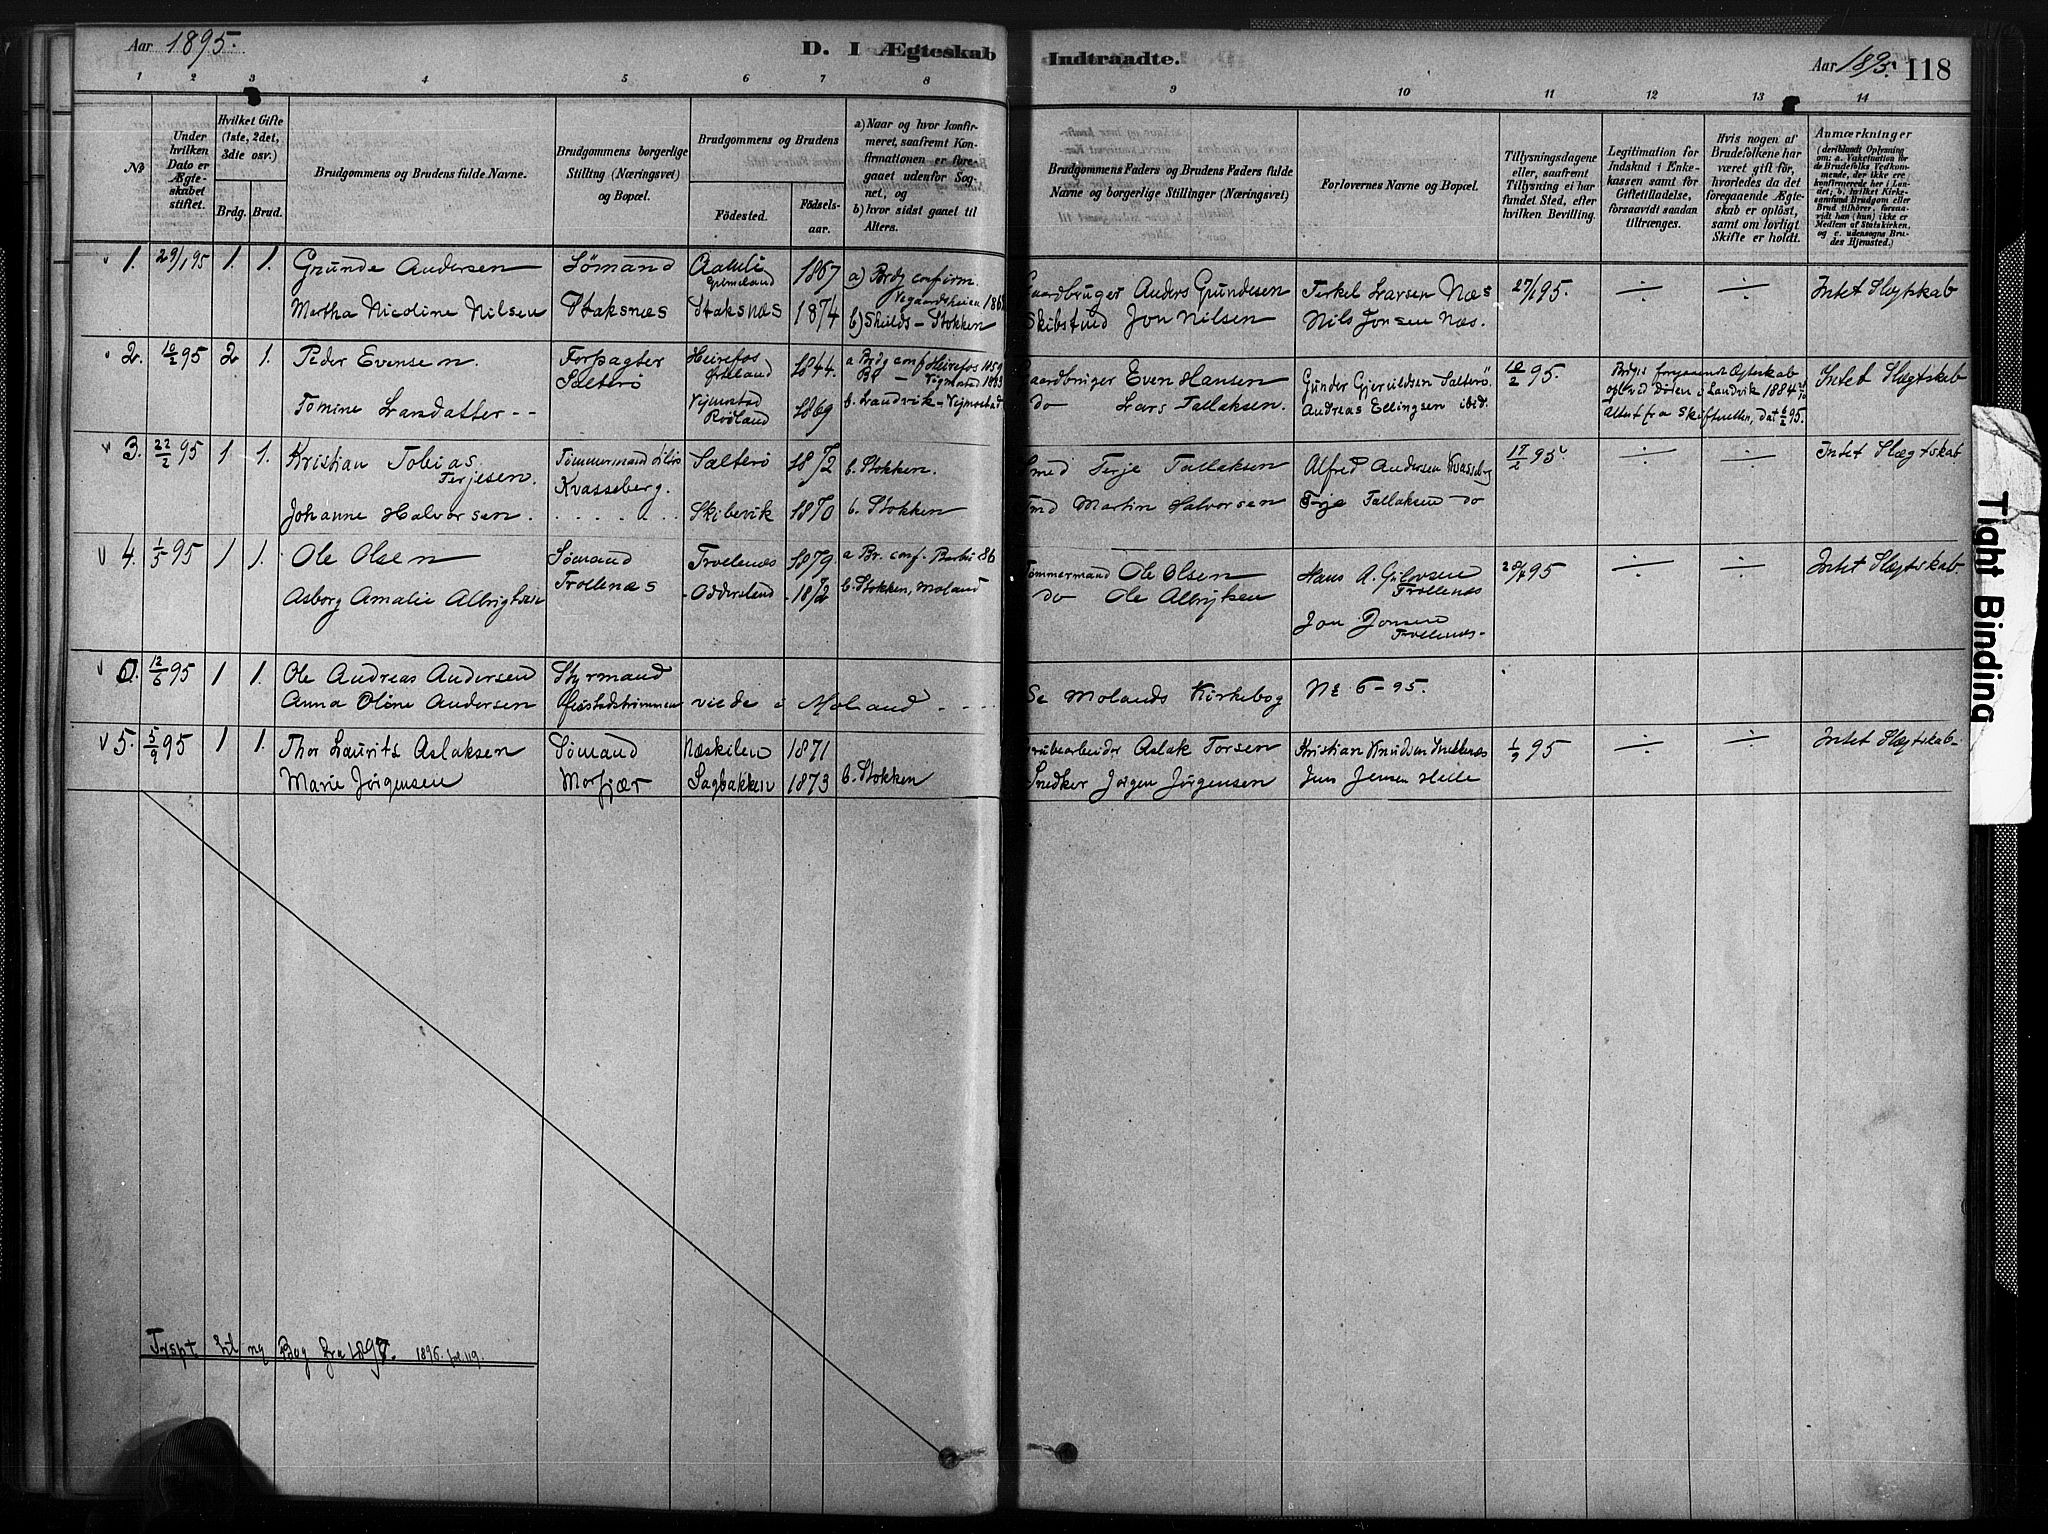 Aar 1895.
D. I Ægteskab
Indtraadte.
Aar 1895. 118
1 2 3 4 5 6 7 8 9 10 11 12 13 14
No
Under hvilken Dato er Ægteskabet stiftet.
Hvilket Gifte (1ste, 2det, 3die osv.)
Brdg. Brud.
Brudgommens og Brudens fulde Navne.
Brudgommens borgerlige Stilling (Næringsvei) og Bopæl.
Brudgommens og Brudens
Födested.
Födselsaar.
a) Naar og hvor konfirmeret, saafremt Konfirmationen er foregaaet udenfor Sognet, og
b) hvor sidst gaaet til Alters.
Brudgommens Faders og Brudens Faders fulde Navne og borgerlige Stillinger (Næringsvei)
Forlovernes Navne og Bopæl.
Tillysningsdagene eller, saafremt Tillysning ei har fundet Sted, efter hvilken Bevilling.
Legitimation for Indskud i Enkekassen samt for Giftetilladelse, forsaavidt saadan tiltrænges.
Hvis nogen af Brudefolkene har været gift før, hvorledes da det foregaaende Ægteskab er oplöst, samt om lovligt Skifte er holdt.
Anmærkninger (deriblandt Oplysning om: a. Vakcination for de Brudefolks Vedkommende, der ikke ere konfirmerede her i Landet; b. hvilket Kirkesamfund Brudgom eller Brud tilhører, forsaavidt han (hun) ikke er Medlem af Statskirken, og c. udensogns Brudes Hjemsted.)
1. 29/1 95 1. 1. Grunde Andersen Sømand Aamli 1867 a) Brdg confirm. Gaardbruger Anders Grundesen Terkel Larsen Næs 27/1 95. Intet Slegtskab
Martha Nicoline Nilsen Staksnæs Staksnæs 1874 b) Skilds - Stokken Skibstmd Jon Nilsen Nils Jonsen Næs.
2. 10/2 95 2. 1. Peder Evensen. Forpagter Salterö Heirefos 1844. a Brdg conf Heirefos 1859 Gaardbruger Even Hansen Gunder Gjeruldsen Salterö. 10/2 95. Brdgs foregaaende Ægteskab Intet Slegtskab
Tomine Larsdatter Vigmostad Rödland 1869 b. Landvik - Vigmostad do Lars Tallaksen. Andreas Ellingsen ibid. opl. ved Døden i Landvik 1884
Attest fra Skifteretten, dat 6/2 95.
3. 22/2 95 1 1. Kristian Tobias Terjesen. Tømmermand Salterö 1872 b. Stokken. Smed Terje Tallaksen Alfred Andersen Kvasseberg 17/2 95 Intet Slegtskab
Kvasseberg.
Johanne Halvorsen. Skibevik 1870 b. Stokken Tmd Martin Halvorsen Terje Tallaksen do
4. 1/5 95 1 1. Ole Olsen Sømand Trollenæs Trollenæs 1879 a Br. conf. Barbu 86 Tømmermand Ole Olsen Hans A. Trollenæs 95 Intet Slegtskab.
Asborg Amalie Albrigtsen Oddersland 1872 b. Stokken, Moland do Ole Albrigtsen
Jon Jonsen Trollenæs
6. 12/6 95 1 1. Ole Andreas Andersen Styrmand
Anna Oline Andersen viede i Moland Se Molands Kirkebog No 6-95.
5. 5/9 95 1 1. Thor Laurits Aslaksen Sømand Næskilen 1871 Grubearbeider Aslak Torsen Kristian Knudsen 1/9 95 Intet Slegtskab.
Marie Jörgensen Morfjær Sagbakken 1873 b. Stokken Snedker Jörgen Jörgensen Jens Jensen Helle
til ny Bog fra 1897. 1896. fol 119.
Tight Binding